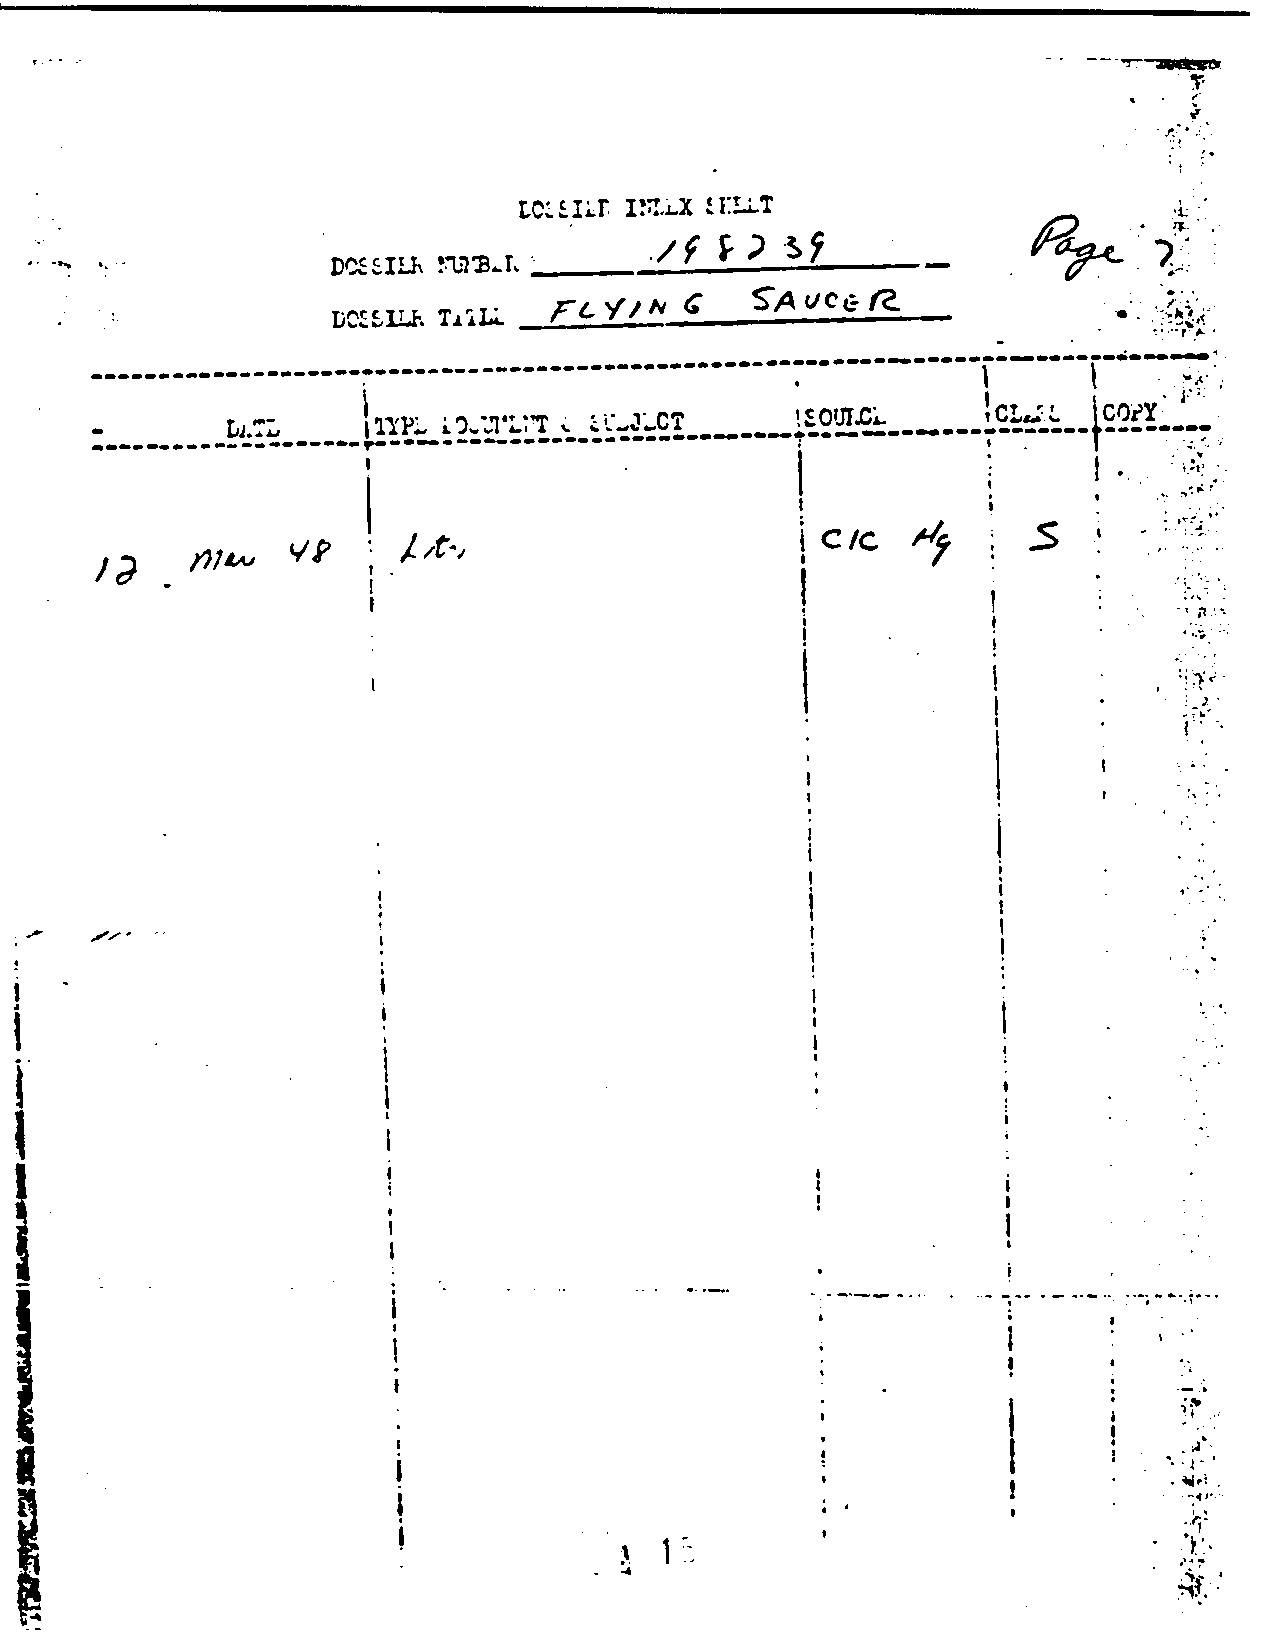 DOSSIER INDEX SHEET
DOSSIER NUMBER 198239
Page 7
DOSSIER TITLE FLYING SAUCER
DATE TYPE DOCUMENT & SUBJECT SOURCE CLASS COPY
12 Mar 48 Ltr, CIC Hq S
A